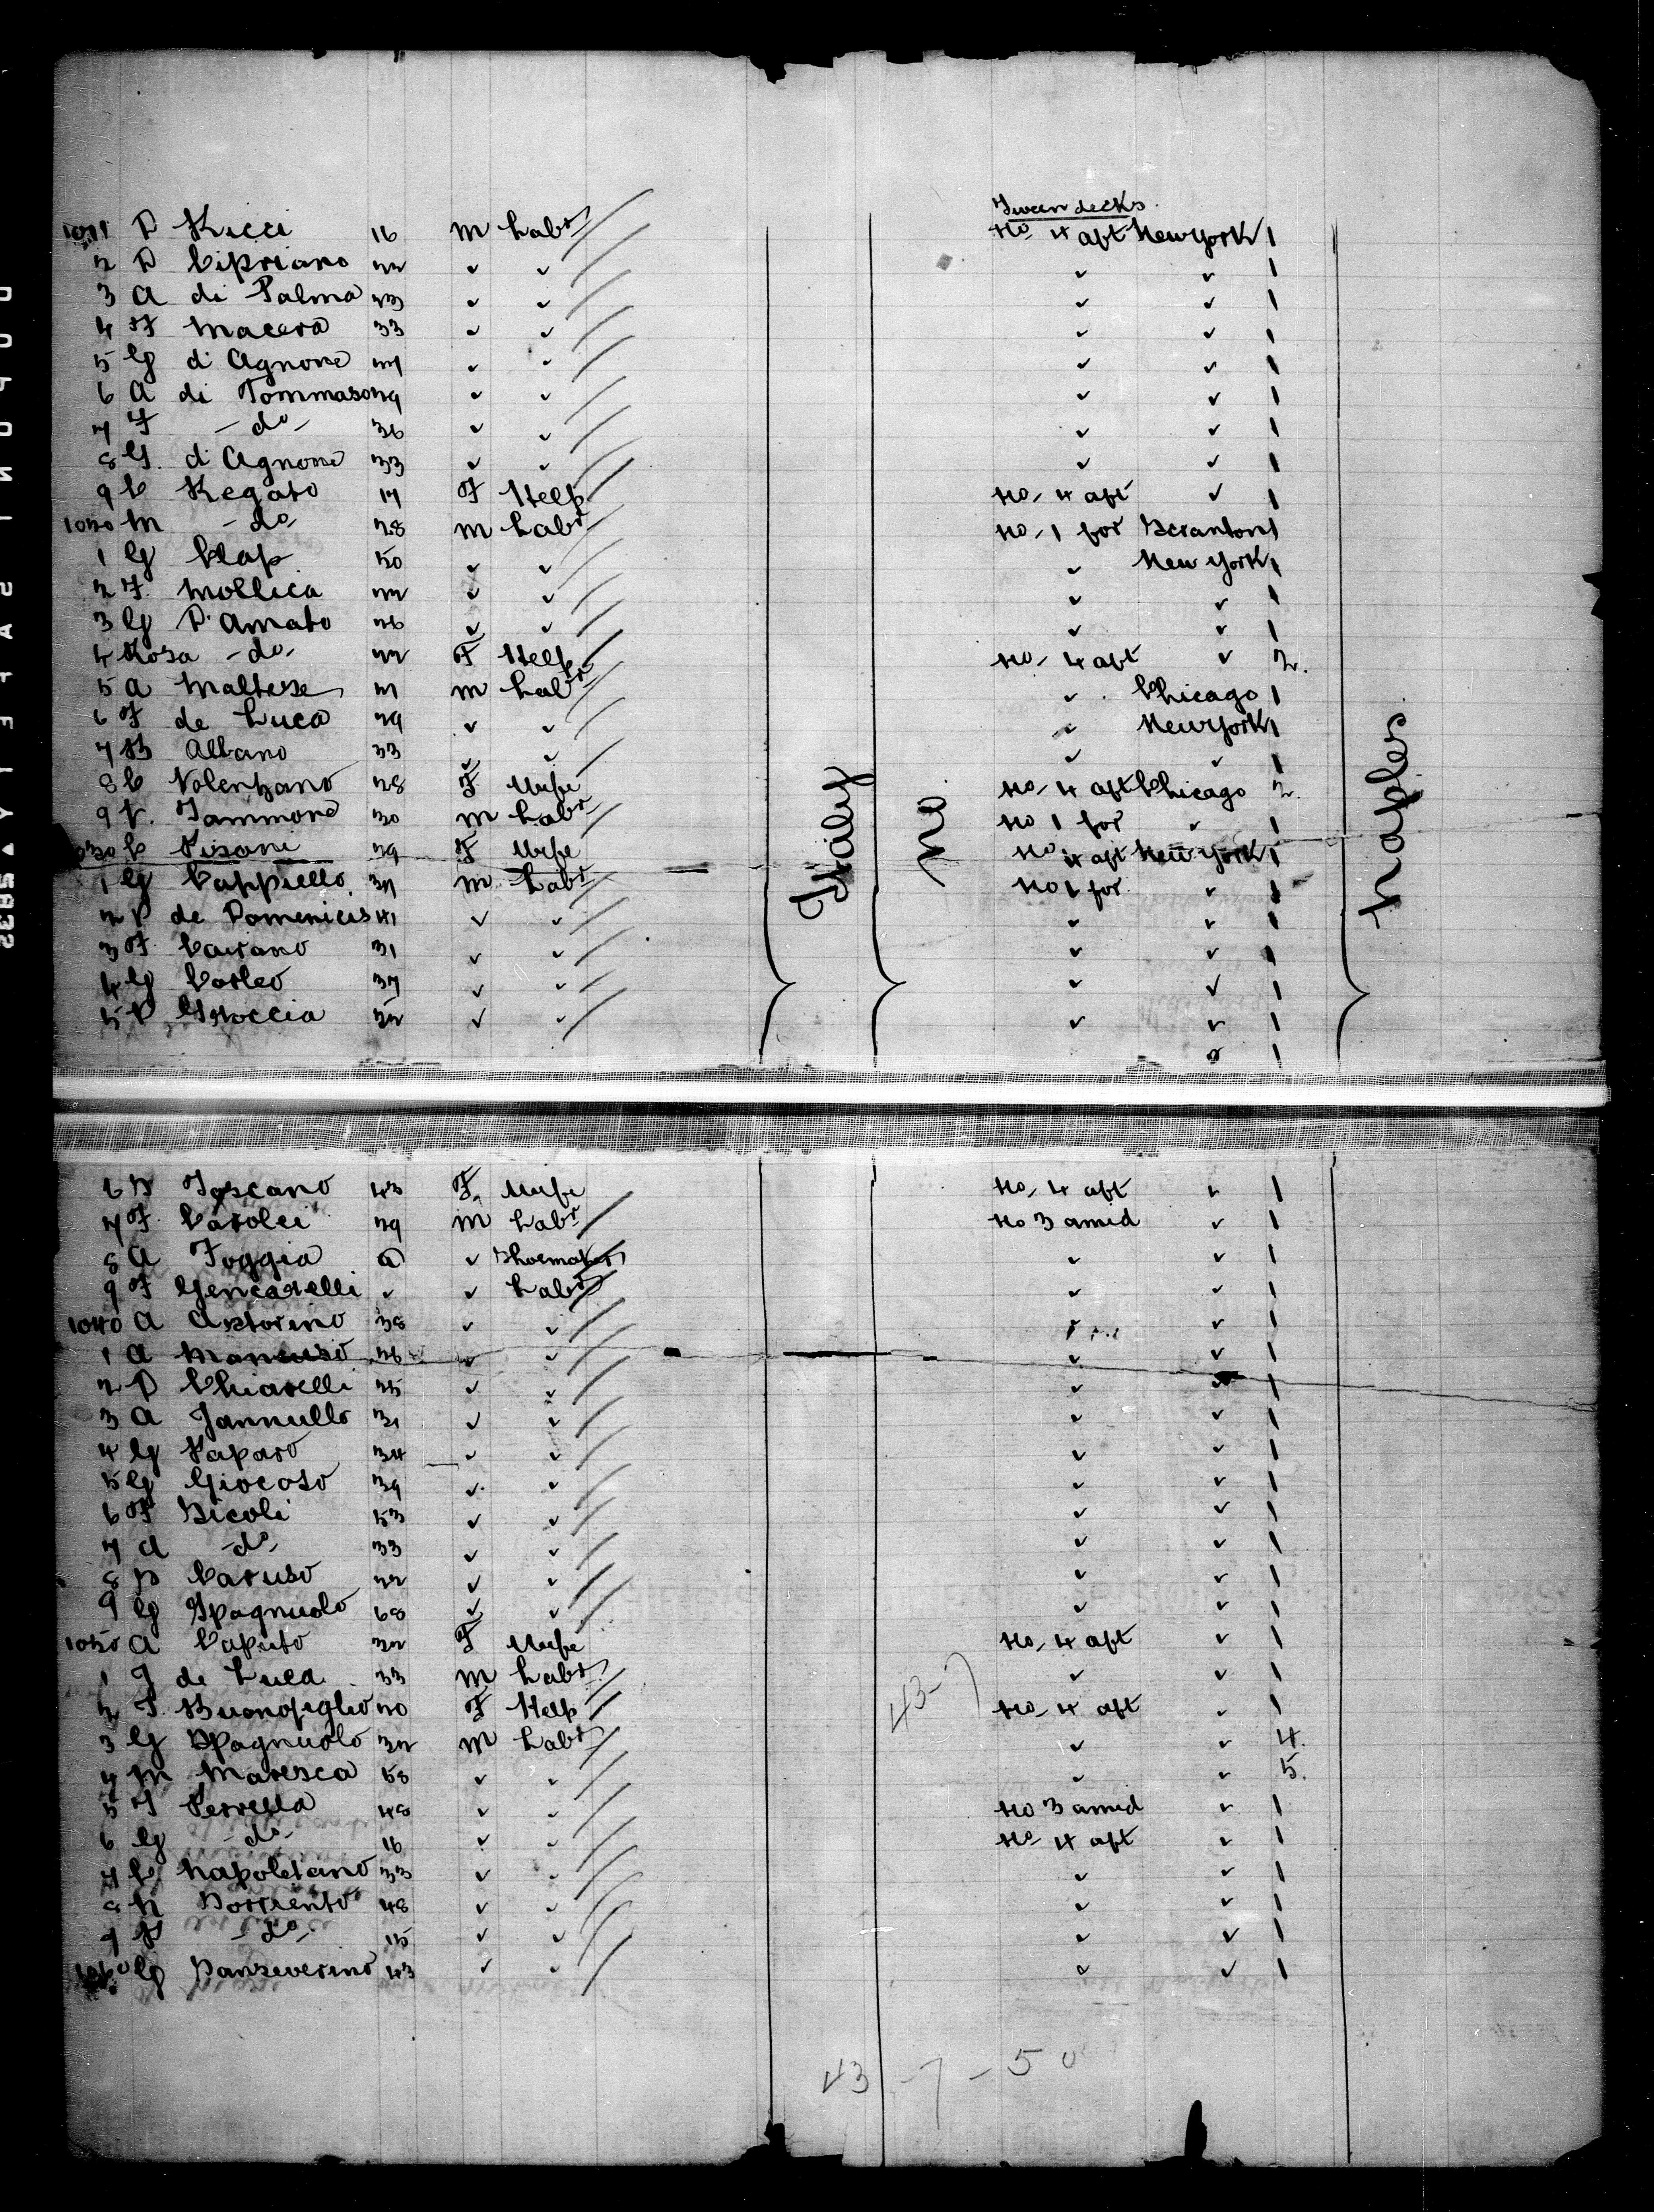 Tween decks
1011 D Ricci 16 M Labr No 4 aft New York 1
2 D Cipriano 22 ✓ ✓ ✓ ✓ 1
3 A di Palma 23 ✓ ✓ ✓ ✓ 1
4 F Macera 33 ✓ ✓ ✓ ✓ 1
5 G d'Agnone ✓ ✓ ✓ ✓ 1
6 A di Tommaso 29 ✓ ✓ ✓ ✓ 1
7 F - do - 36 ✓ ✓ ✓ ✓ 1
8 G. d'Agnone 33 ✓ ✓ ✓ ✓ 1
9 C Regato 17 F Help No. 4 aft ✓ 1
1020 M - do - 28 M Labr No. 1 for Scranton 1
1 G Clap 50 ✓ ✓ ✓ New York 1
2 F. Mollica 22 ✓ ✓ ✓ ✓ 1
3 G D'Amato 26 ✓ ✓ ✓ ✓ 1
4 Rosa - do - 22 F Help No. 4 aft ✓ 2.
5 A Maltese M Labr ✓ Chicago 1
6 F de Luca 29 ✓ ✓ ✓ New York 1
7 B Albano 33 ✓ ✓ ✓ ✓ 1
8 C Valenzano 28 F Wife No. 4 aft Chicago 2.
9 V. Iammone 30 M Labr No 1 for ✓ 1
1030 C Pisani 29 F Wife No 4 aft New York 1
1 G Cappiello 37 M Labr No 1 for ✓ 1
2 D de Domenicis 41 ✓ ✓ ✓ ✓ 1
3 F. Cairano 31 ✓ ✓ ✓ ✓ 1
4 G Corleo 37 ✓ ✓ ✓ ✓ 1
5 D Groccia 32 ✓ ✓ ✓ ✓ 1
✓ 1
Italy
no
Naples
6 B Toscano 43 F. Wife No. 4 aft ✓ 1
7 F. Carolei 29 M Labr No 3 amid ✓ 1
8 A Foggia ✓ Shoemaker ✓ ✓ 1
9 F Gencarelli ✓ ✓ Labr ✓ ✓ 1
1040 A Astorino 38 ✓ ✓ ✓ ✓ 1
1 A Mancuso 26 ✓ ✓ ✓ ✓ 1
2 D Chiarelli 25 ✓ ✓ ✓ ✓ 1
3 A Iannullo 31 ✓ ✓ ✓ ✓ 1
4 G Paparo 34 ✓ ✓ ✓ ✓ 1
5 G Giocoso 39 ✓ ✓ ✓ ✓ 1
6 F Sicoli 53 ✓ ✓ ✓ ✓ 1
7 A - do - 33 ✓ ✓ ✓ ✓ 1
8 B Caruso 22 ✓ ✓ ✓ ✓ 1
9 G Spagnuolo 68 ✓ ✓ ✓ ✓ 1
1050 A Caputo 32 F Wife No. 4 aft ✓ 1
1 I de Luca 33 M Labr ✓ ✓ 1
2 T. Buonofiglio 20 F Help No. 4 aft ✓ 1
3 G Spagnuolo 32 M Labr ✓ ✓ 4.
4 M Maresca 58 ✓ ✓ ✓ ✓ 5.
5 I Perrella 48 ✓ ✓ No 3 amid ✓ 1
6 G - do - 16 ✓ ✓ No 4 aft ✓ 1
7 C Napoletano 33 ✓ ✓ ✓ ✓ 1
8 N Sorriento 48 ✓ ✓ ✓ ✓ 1
9 - do - 15 ✓ ✓ ✓ ✓ 1
1060 G Sanseverino 43 ✓ ✓ ✓ ✓ 1
43-7
43-7-50